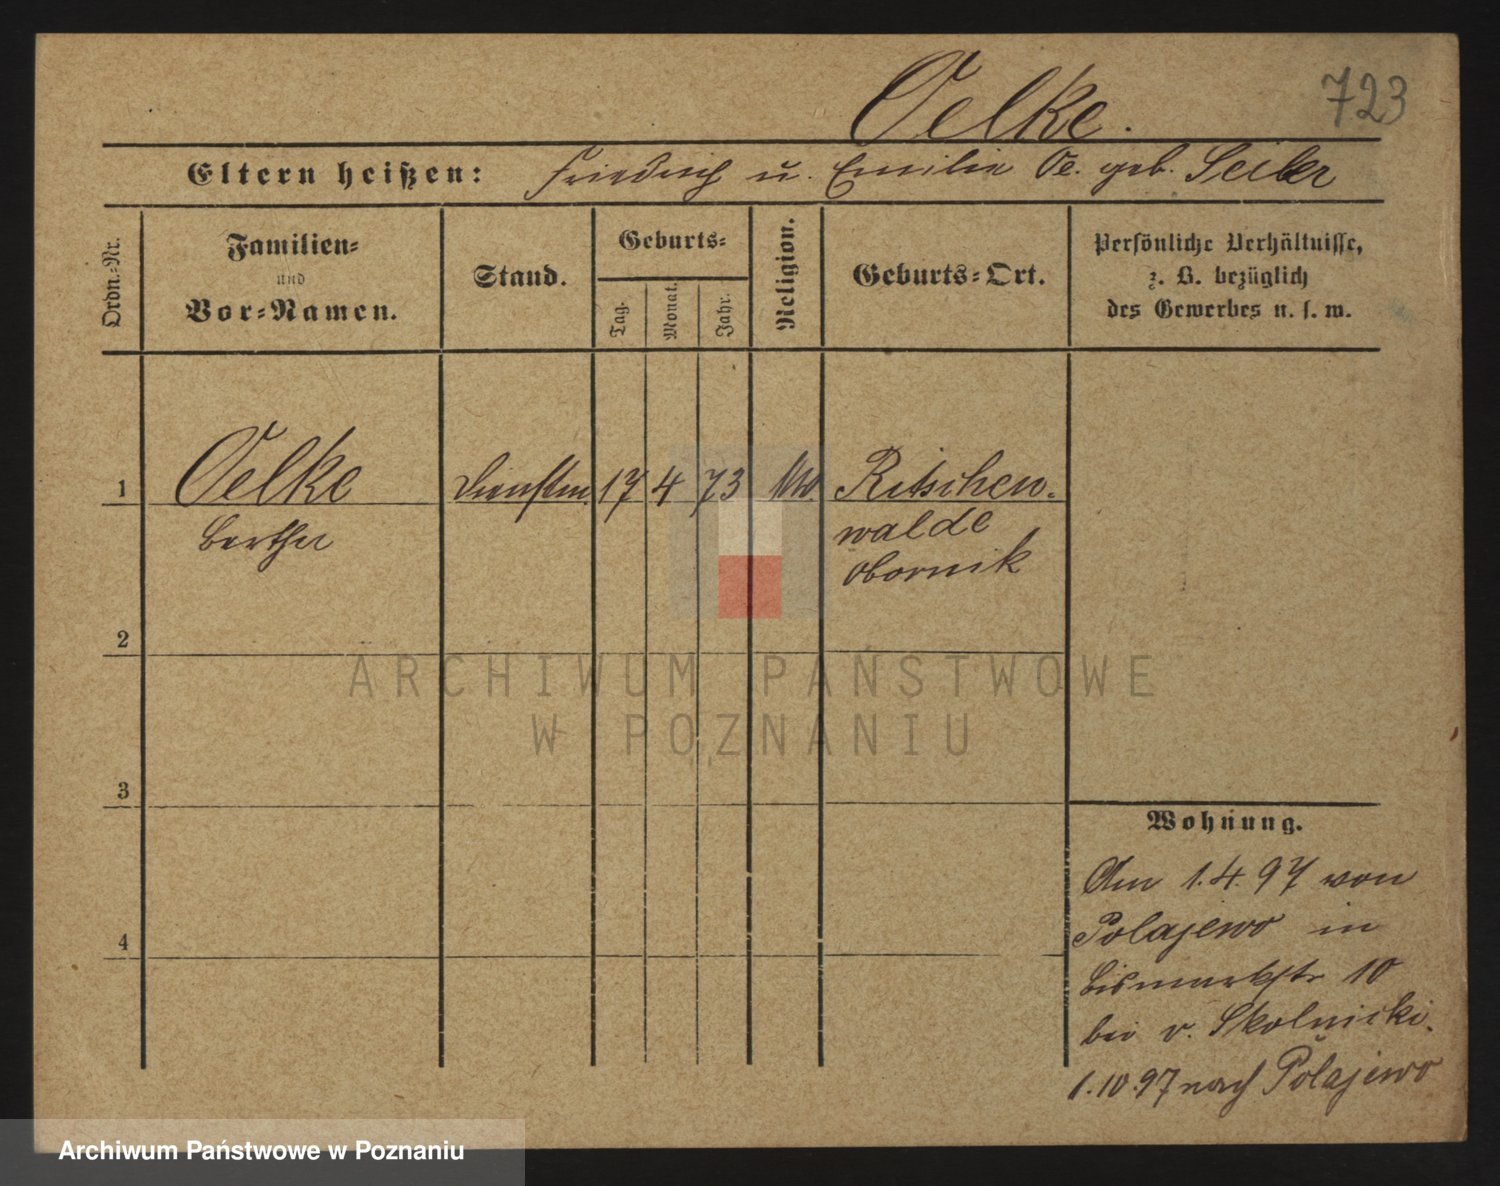 Oelke.
723
Eltern heißen: Friedrich u. Emilie Oe. geb. Seiler
Ordn.-Nr.
Familien-
und
Vor-Namen.
Stand.
Geburts-
Tag.
Monat.
Jahr.
Religion.
Geburts-Ort.
Persönliche Verhältnisse,
z. B. bezüglich
des Gewerbes u. s. w.
1 Oelke 17 4 73 Ritschen-
Bertha walde
Obornik
2
3
4
Wohnung.
Am 1.4.97 von
Polajewo in
Bismarkstr 10
bei v. Skolnicki.
1.10.97 nach Polajewo
ARCHIWUM PAŃSTWOWE
W POZNANIU
Archiwum Państwowe w Poznaniu